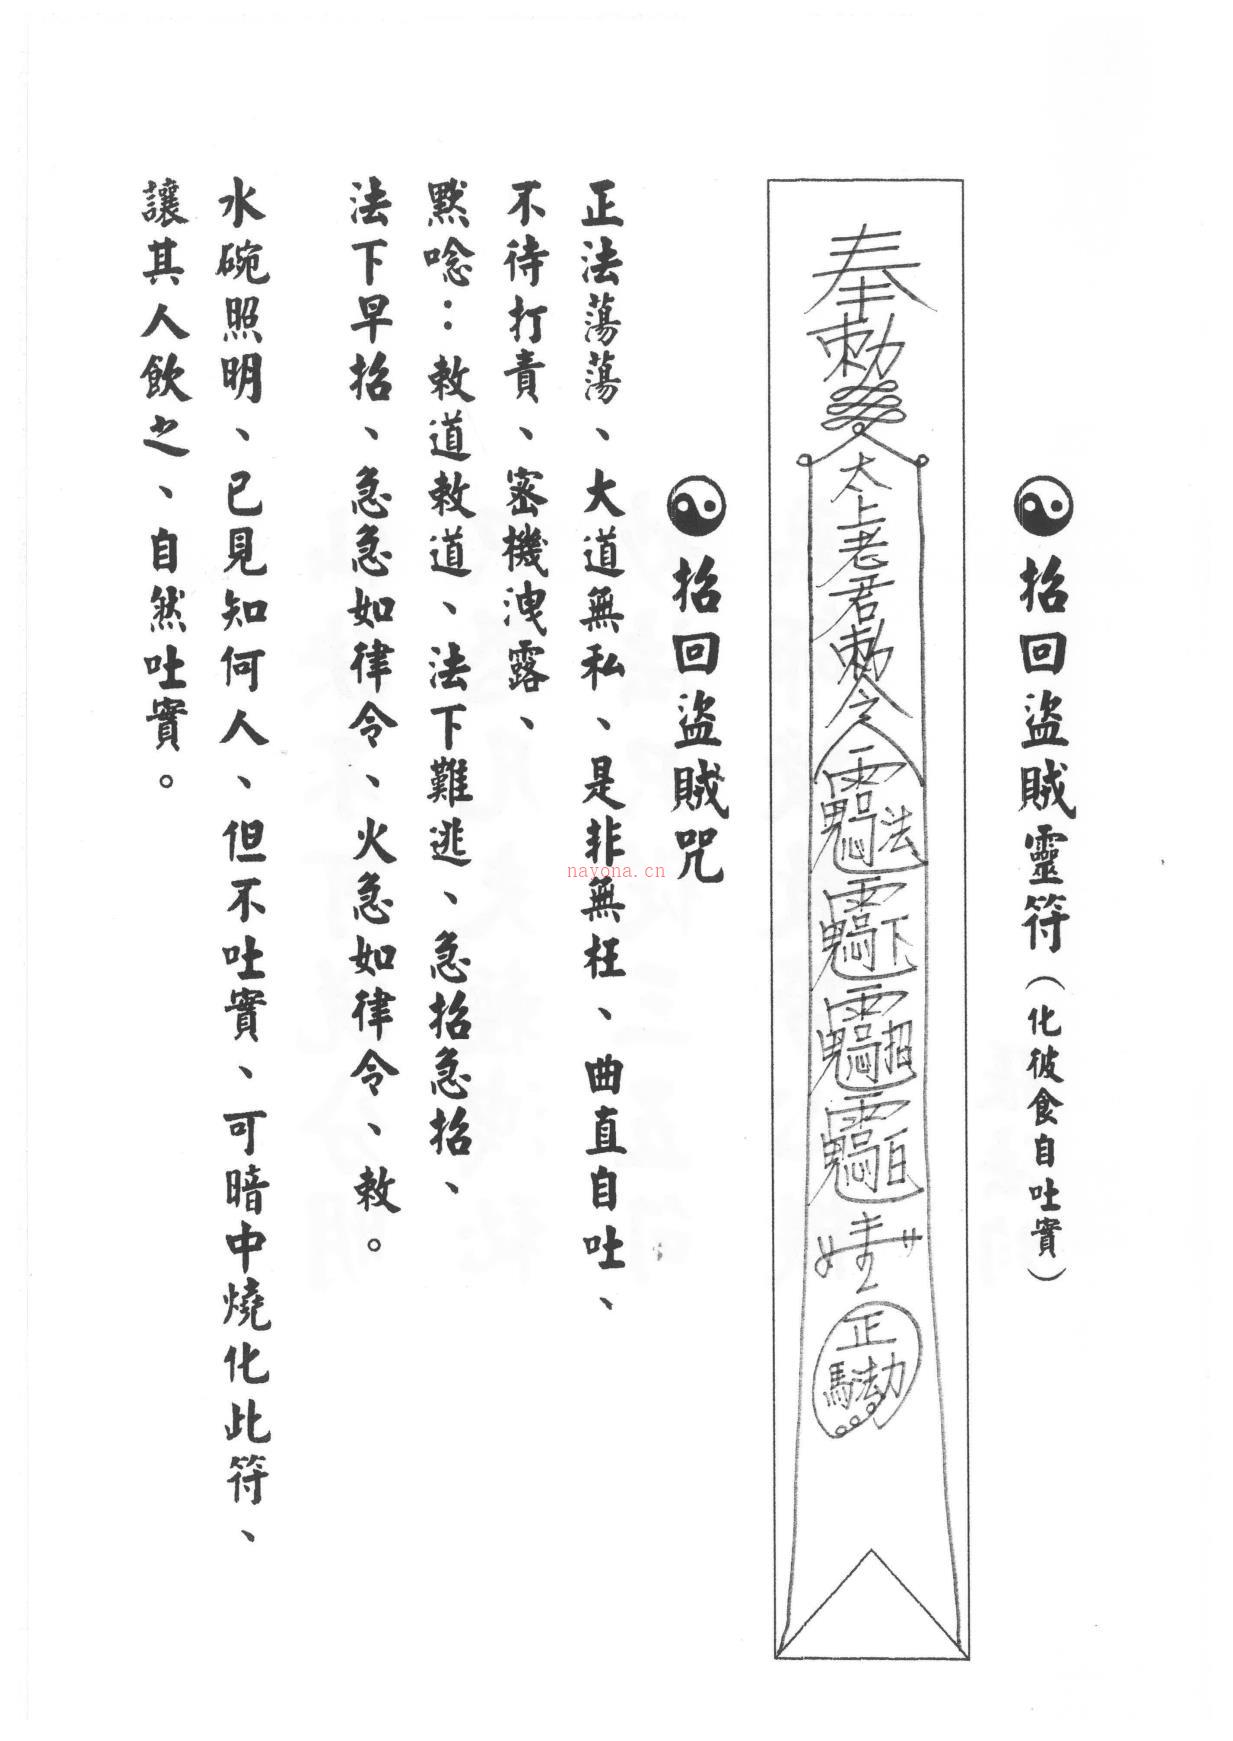 招回盜賊靈符（化彼食自吐實）
奉
勅
太上老君勅令
法
下
招
正
招回盜賊咒
正法蕩蕩、大道無私、是非無枉、曲直自吐、
不待打責、密機洩露、
默唸：敕道敕道、法下難逃、急招急招、
法下早招、急急如律令、火急如律令、敕。
水碗照明、已見知何人、但不吐實、可暗中燒化此符、
讓其人飲之、自然吐實。
nayona.cn